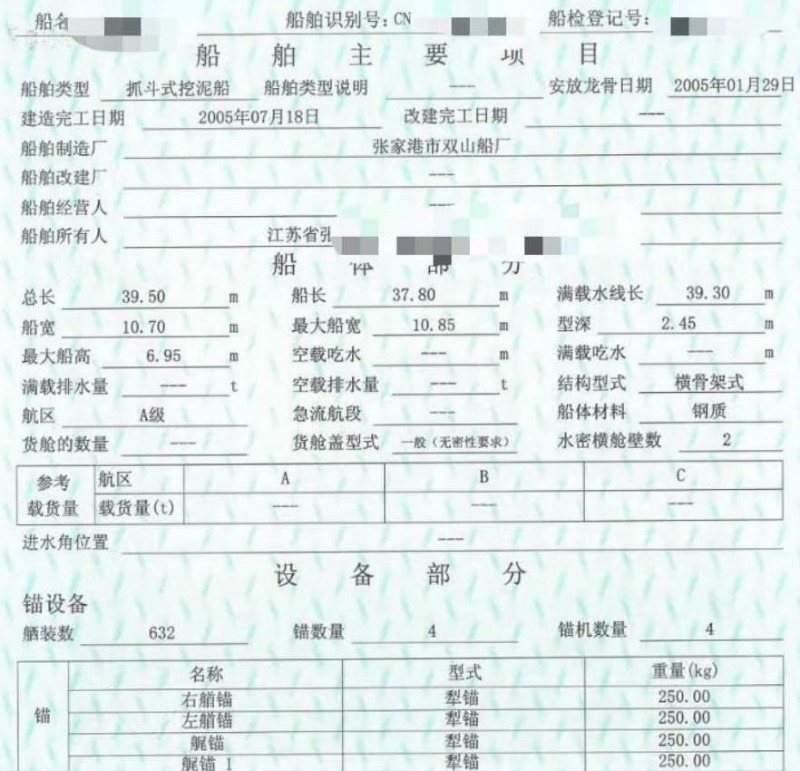 船名 船舶识别号：CN 船检登记号：
船 舶 主 要 项 目
船舶类型 抓斗式挖泥船 船舶类型说明 --- 安放龙骨日期 2005年01月29日
建造完工日期 2005年07月18日 改建完工日期 ---
船舶制造厂 张家港市双山船厂
船舶改建厂 ---
船舶经营人 ---
船舶所有人 江苏省张
船 体 部 分
总长 39.50 m 船长 37.80 m 满载水线长 39.30 m
船宽 10.70 m 最大船宽 10.85 m 型深 2.45 m
最大船高 6.95 m 空载吃水 --- m 满载吃水 --- m
满载排水量 --- t 空载排水量 --- t 结构型式 横骨架式
航区 A级 急流航段 --- 船体材料 钢质
货舱的数量 --- 货舱盖型式 一般（无密性要求） 水密横舱壁数 2
参考 航区 A B C
载货量 载货量(t) --- --- ---
进水角位置 ---
设 备 部 分
锚设备
舾装数 632 锚数量 4 锚机数量 4
名称 型式 重量(kg)
锚 右艏锚 犁锚 250.00
左艏锚 犁锚 250.00
艉锚 犁锚 250.00
艉锚 1 犁锚 250.00